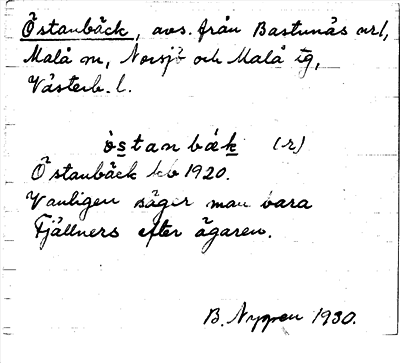 Östanbäck, avs. från Bastunäs nr 1,
Malå sn, Norsjö och Malå tg,
Västerb. l.
òstanbäk (r)
Östanbäck kb 1920.
Vanligen säger man bara
Fjällners efter ägaren.
B. Nygren 1930.